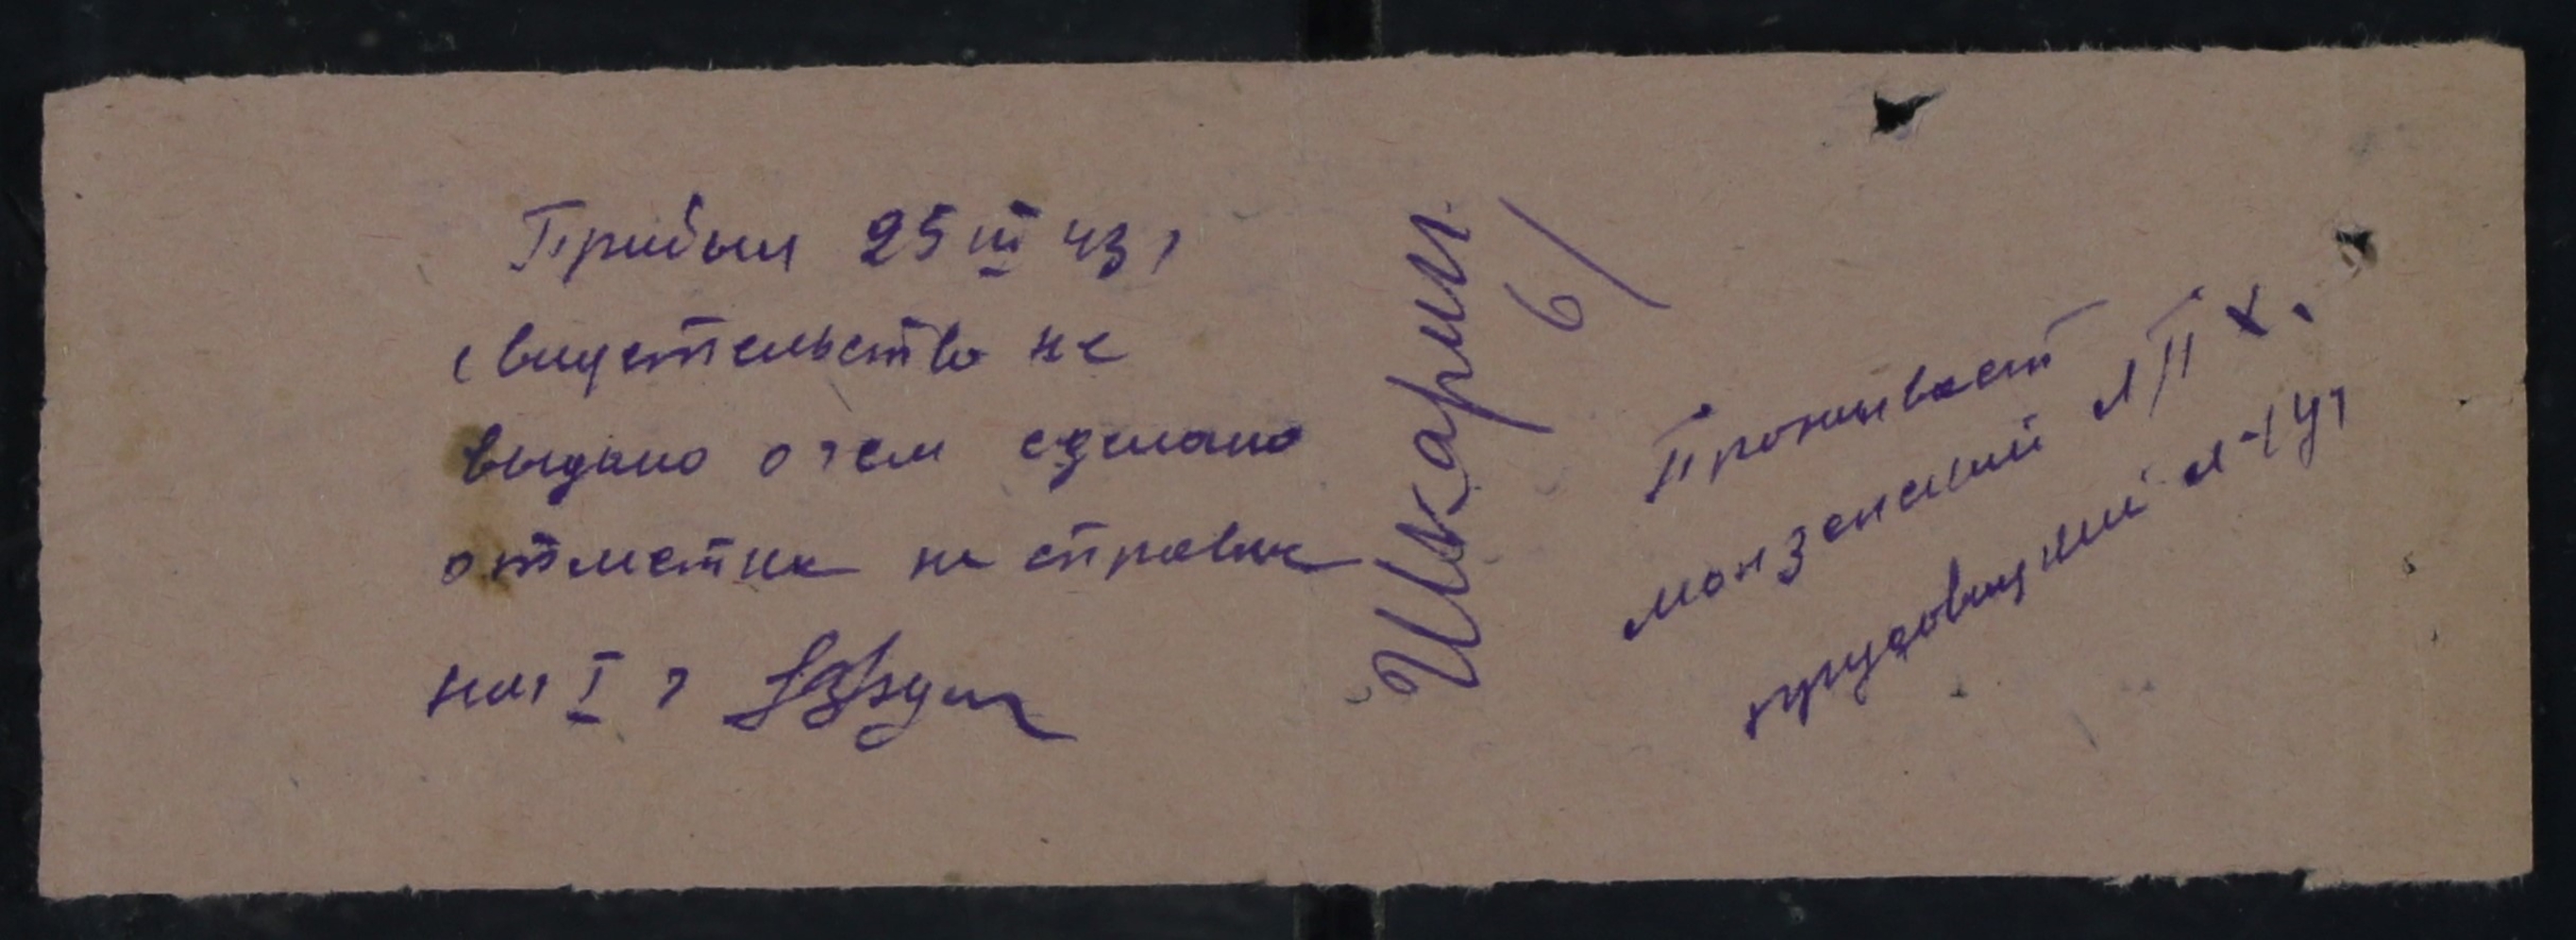 Прибыл 25 III 43г
свидетельство не
выдано о чем сделано
отметка на справке
нач I ч
Шкарин
б/
Проживает
монзенский ЛПХ.
прудовицкий л-ч уч